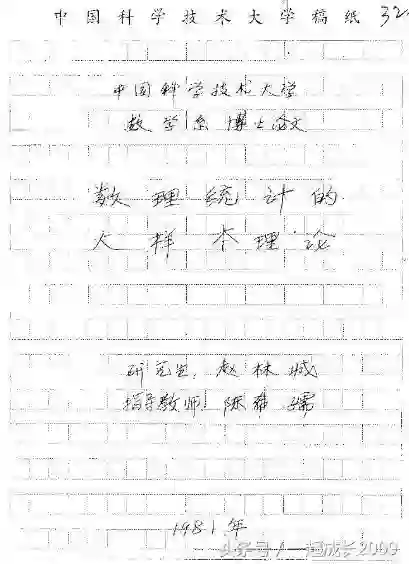 中国科学技术大学稿纸 32
中国科学技术大学
数学系博士论文
数理统计的
大样本理论
研究生: 赵林城
指导教师: 陈希孺
1981年
头条号 / 一起成长2000